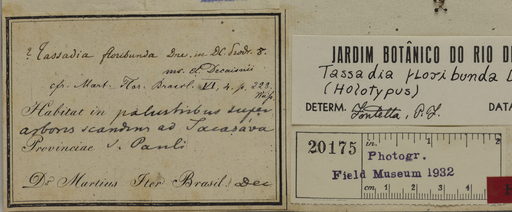 ? Tassadia floribunda Dne. in DC. Prodr. 8.
ms. cl. Decaisnii
cfr. Mart. Flor. Brasil. VI, 4. p. 232
Habitat in palustribus super
arbores scandens ad Jacasava
Provinciae S. Pauli
Dr Martius Iter Brasil. Dec
JARDIM BOTÂNICO DO RIO DE
Tassadia floribunda
(Holotypus)
DETERM. Fontella, P.J. DATA
20175
in. 1
Photogr.
Field Museum 1932
cm. 1 2 3 4